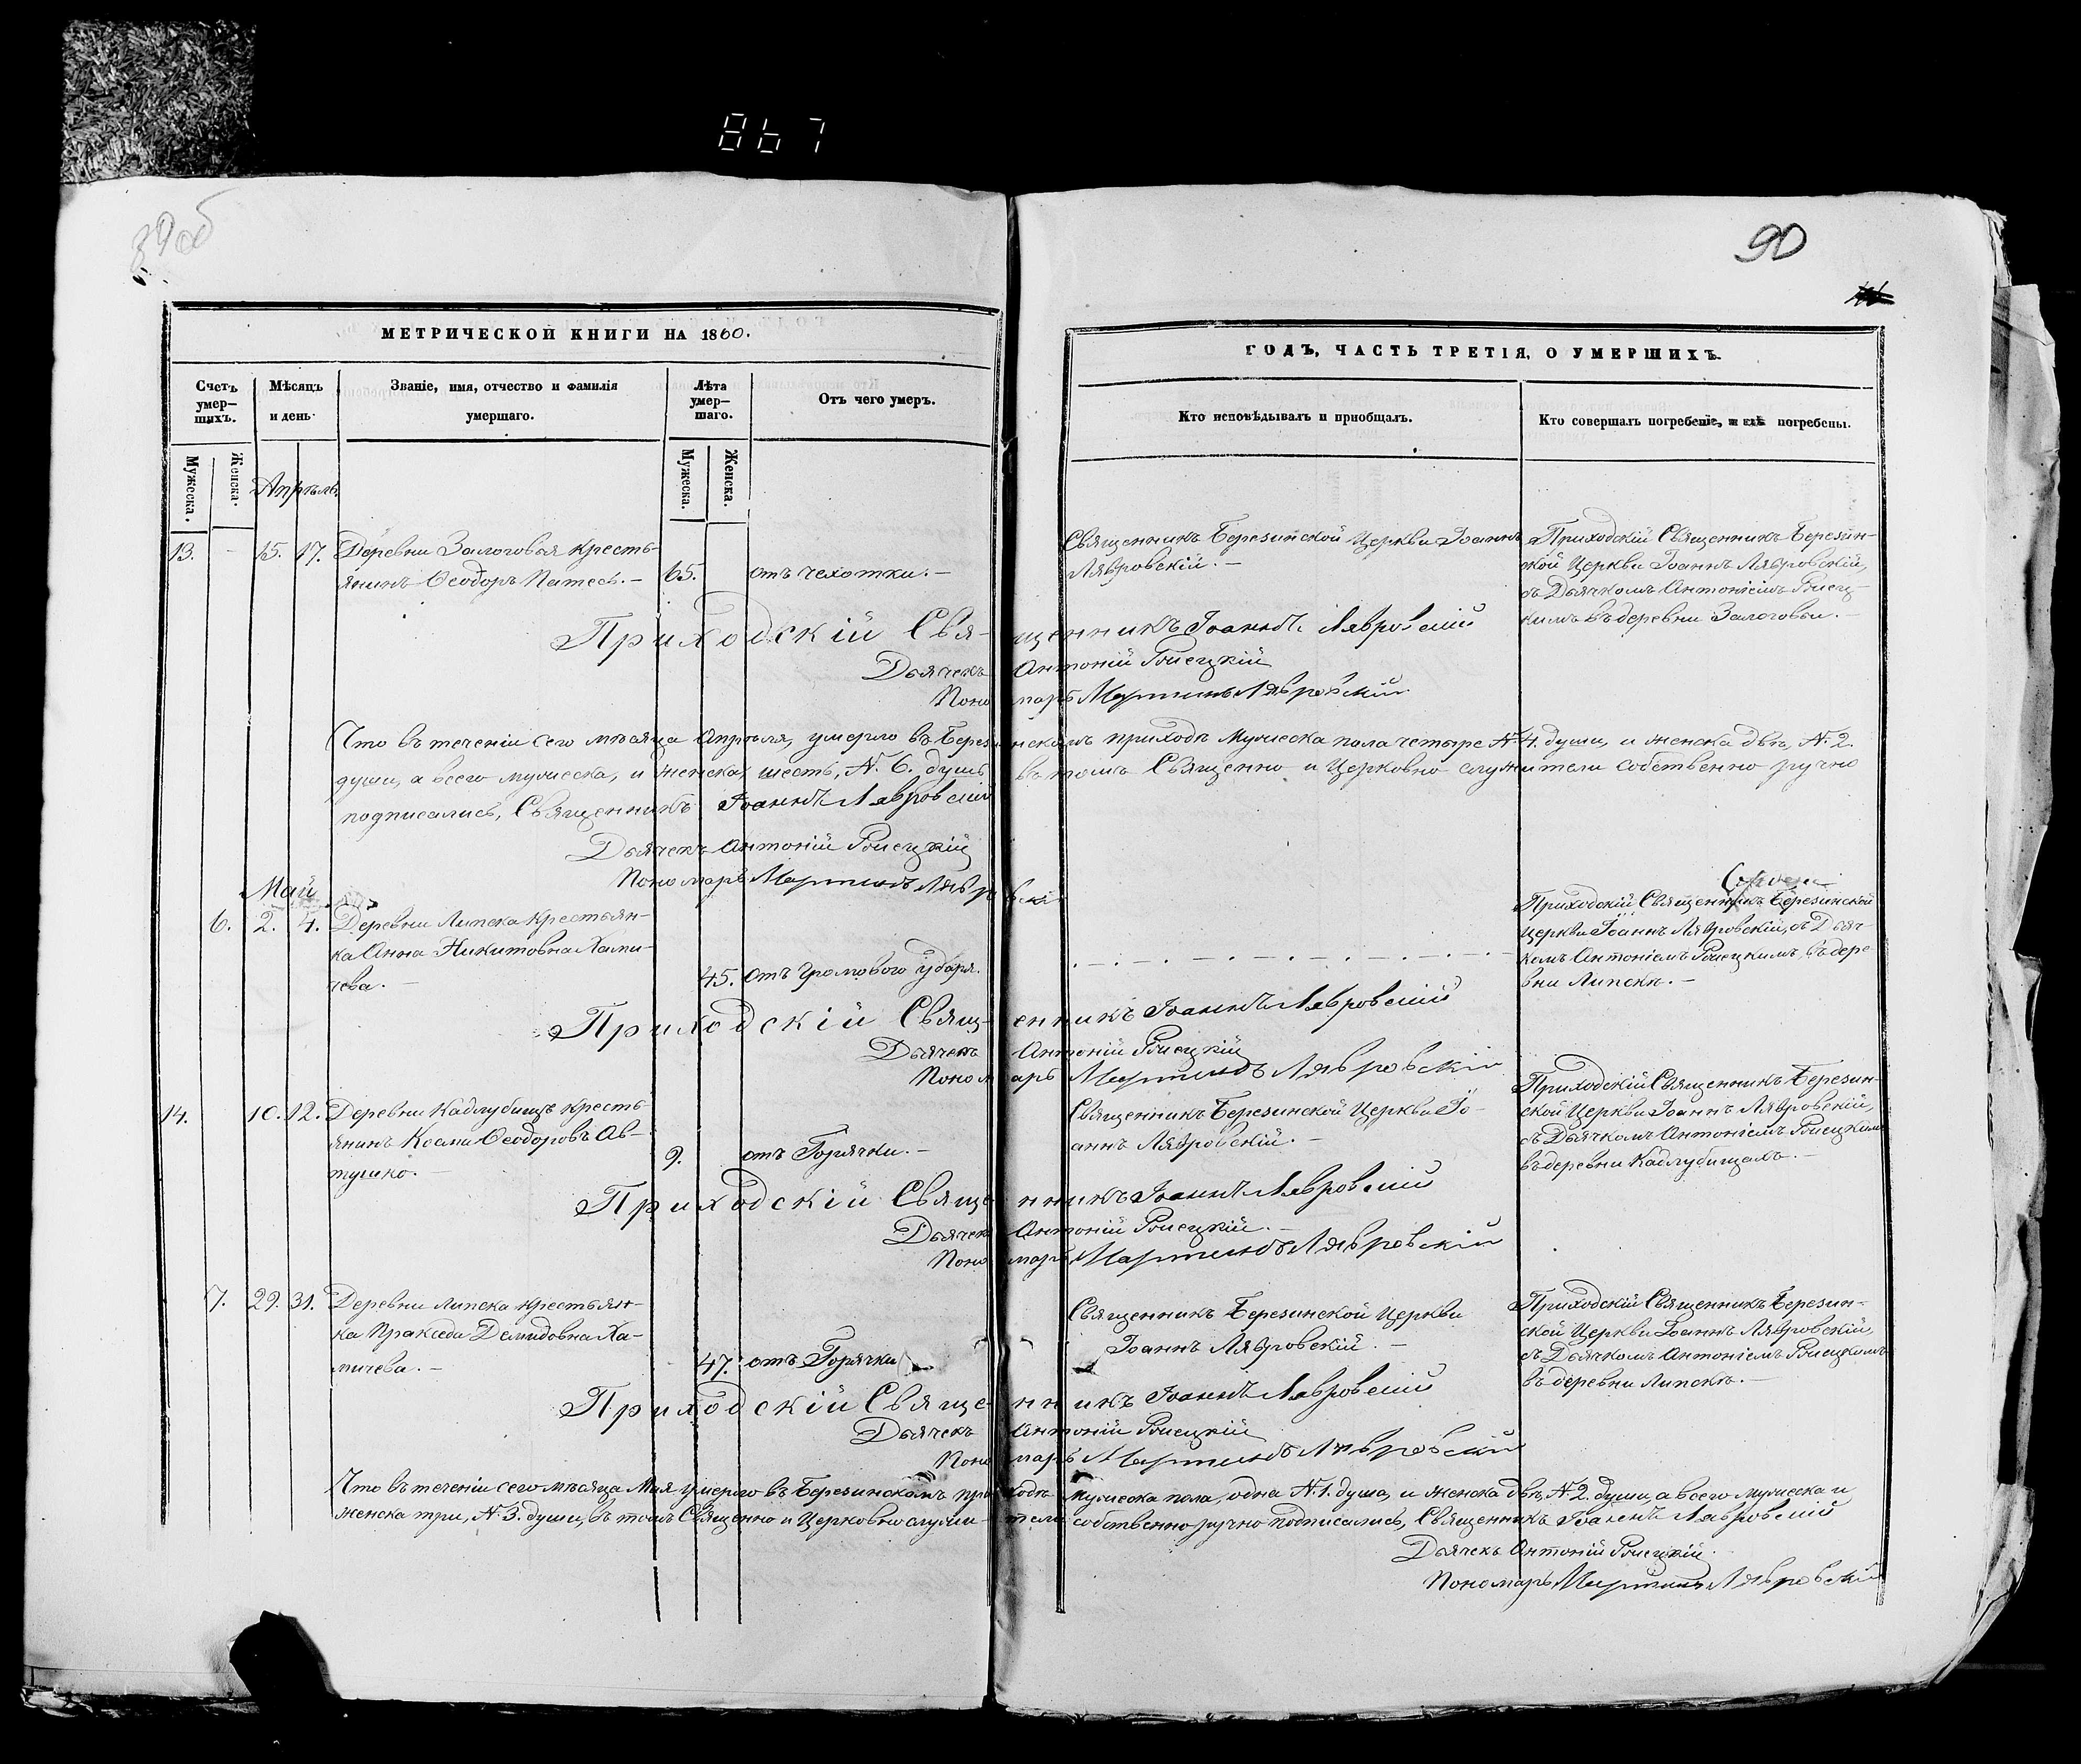 867
89об
90
МЕТРИЧЕСКОЙ КНИГИ НА 1860.
ГОДЪ, ЧАСТЬ ТРЕТІЯ, О УМЕРШИХЪ.
Счетъ умер-шихъ.
Мѣсяцъ и день.
Званіе, имя, отчество и фамилія умершаго.
Лѣта умер-шаго.
Отъ чего умеръ.
Кто исповѣдывалъ и пріобщалъ.
Кто совершалъ погребеніе, и гдѣ погребены.
Мужеска.
Женска.
Мужеска.
Женска.
Апрѣль.
13. - 15. 17. Деревни Залоговья кресть-
янинъ Ѳеодоръ Патесъ. - 65. отъ чехотки. -
Священникъ Березинской Церкви Іоаннъ
Лявровскій. -
Приходскій Священникъ Березин-
кой Церкви Іоаннъ Лявровскій,
съ Дьячкомъ Антоніемъ Роиецкимъ
въ деревни Залоговьи. -
Приходскій Священникъ Іоаннъ Лявровскій
Дьячекъ Антоній Роиецкій
Пономарь Мартинъ Лявровскій
Что въ теченіи сего мѣсяца Апрѣля, умерло въ Березинскомъ приходѣ мужеска пола четыре №. 4. души, и женска двѣ, №. 2.
души, а всего мужеска, и женска, шесть, №. 6. душъ въ томъ Священно и Церковно служители собственно ручно
подписались, Священникъ Іоаннъ Лявровскій
Дьячекъ Антоній Роиецкій
Пономарь Мартинъ Лявровскій
Май
6. 2. 4. Деревни Липска крестьян-
ка Анна Никитовна Хами-
чева. - 45. отъ громового удара.
Приходскій Священникъ Березинской
Церкви Іоаннъ Лявровскій, съ Дьяч-
комъ Антоніемъ Роиецкимъ, въ дере-
вни Липскѣ. -
Приходскій Священникъ Іоаннъ Лявровскій
Дьячекъ Антоній Роиецкій
Пономарь Мартинъ Лявровскій
14. 10. 12. Деревни Кадлубищъ кресть-
янинъ Косма Ѳеодоровъ Ав-
тушко. - 9. отъ Горячки. -
Священникъ Березинской Церкви Іо-
аннъ Лявровскій. -
Приходскій Священникъ Березин-
ской Церкви Іоаннъ Лявровскій,
съ Дьячкомъ Антоніемъ Роиецкимъ
въ деревни Кадлубищахъ. -
Приходскій Священникъ Іоаннъ Лявровскій
Дьячекъ Антоній Роиецкій. -
Пономарь Мартинъ Лявровскій
7. 29. 31. Деревни Липска крестьян-
ка Пракседа Демидовна Ха-
мичева. - 47. отъ Горячки
Священникъ Березинской Церкви
Іоаннъ Лявровскій. -
Приходскій Священникъ Березин-
ской Церкви Іоаннъ Лявровскій,
съ Дьячкомъ Антоніемъ Роиецкимъ
въ деревни Липскѣ. -
Приходскій Священникъ Іоаннъ Лявровскій
Дьячекъ Антоній Роиецкій
Пономарь Мартинъ Лявровскій
Что въ теченіи сего мѣсяца Мая умерло въ Березинскомъ приходѣ мужеска пола, одна №. 1. душа, и женска двѣ, №. 2. души, а всего мужеска и
женска три, №. 3. души, въ томъ Священно и Церковно служители собственно ручно подписались, Священникъ Іоаннъ Лявровскій
Дьячекъ Антоній Роиецкій.
Пономарь Мартинъ Лявровскій